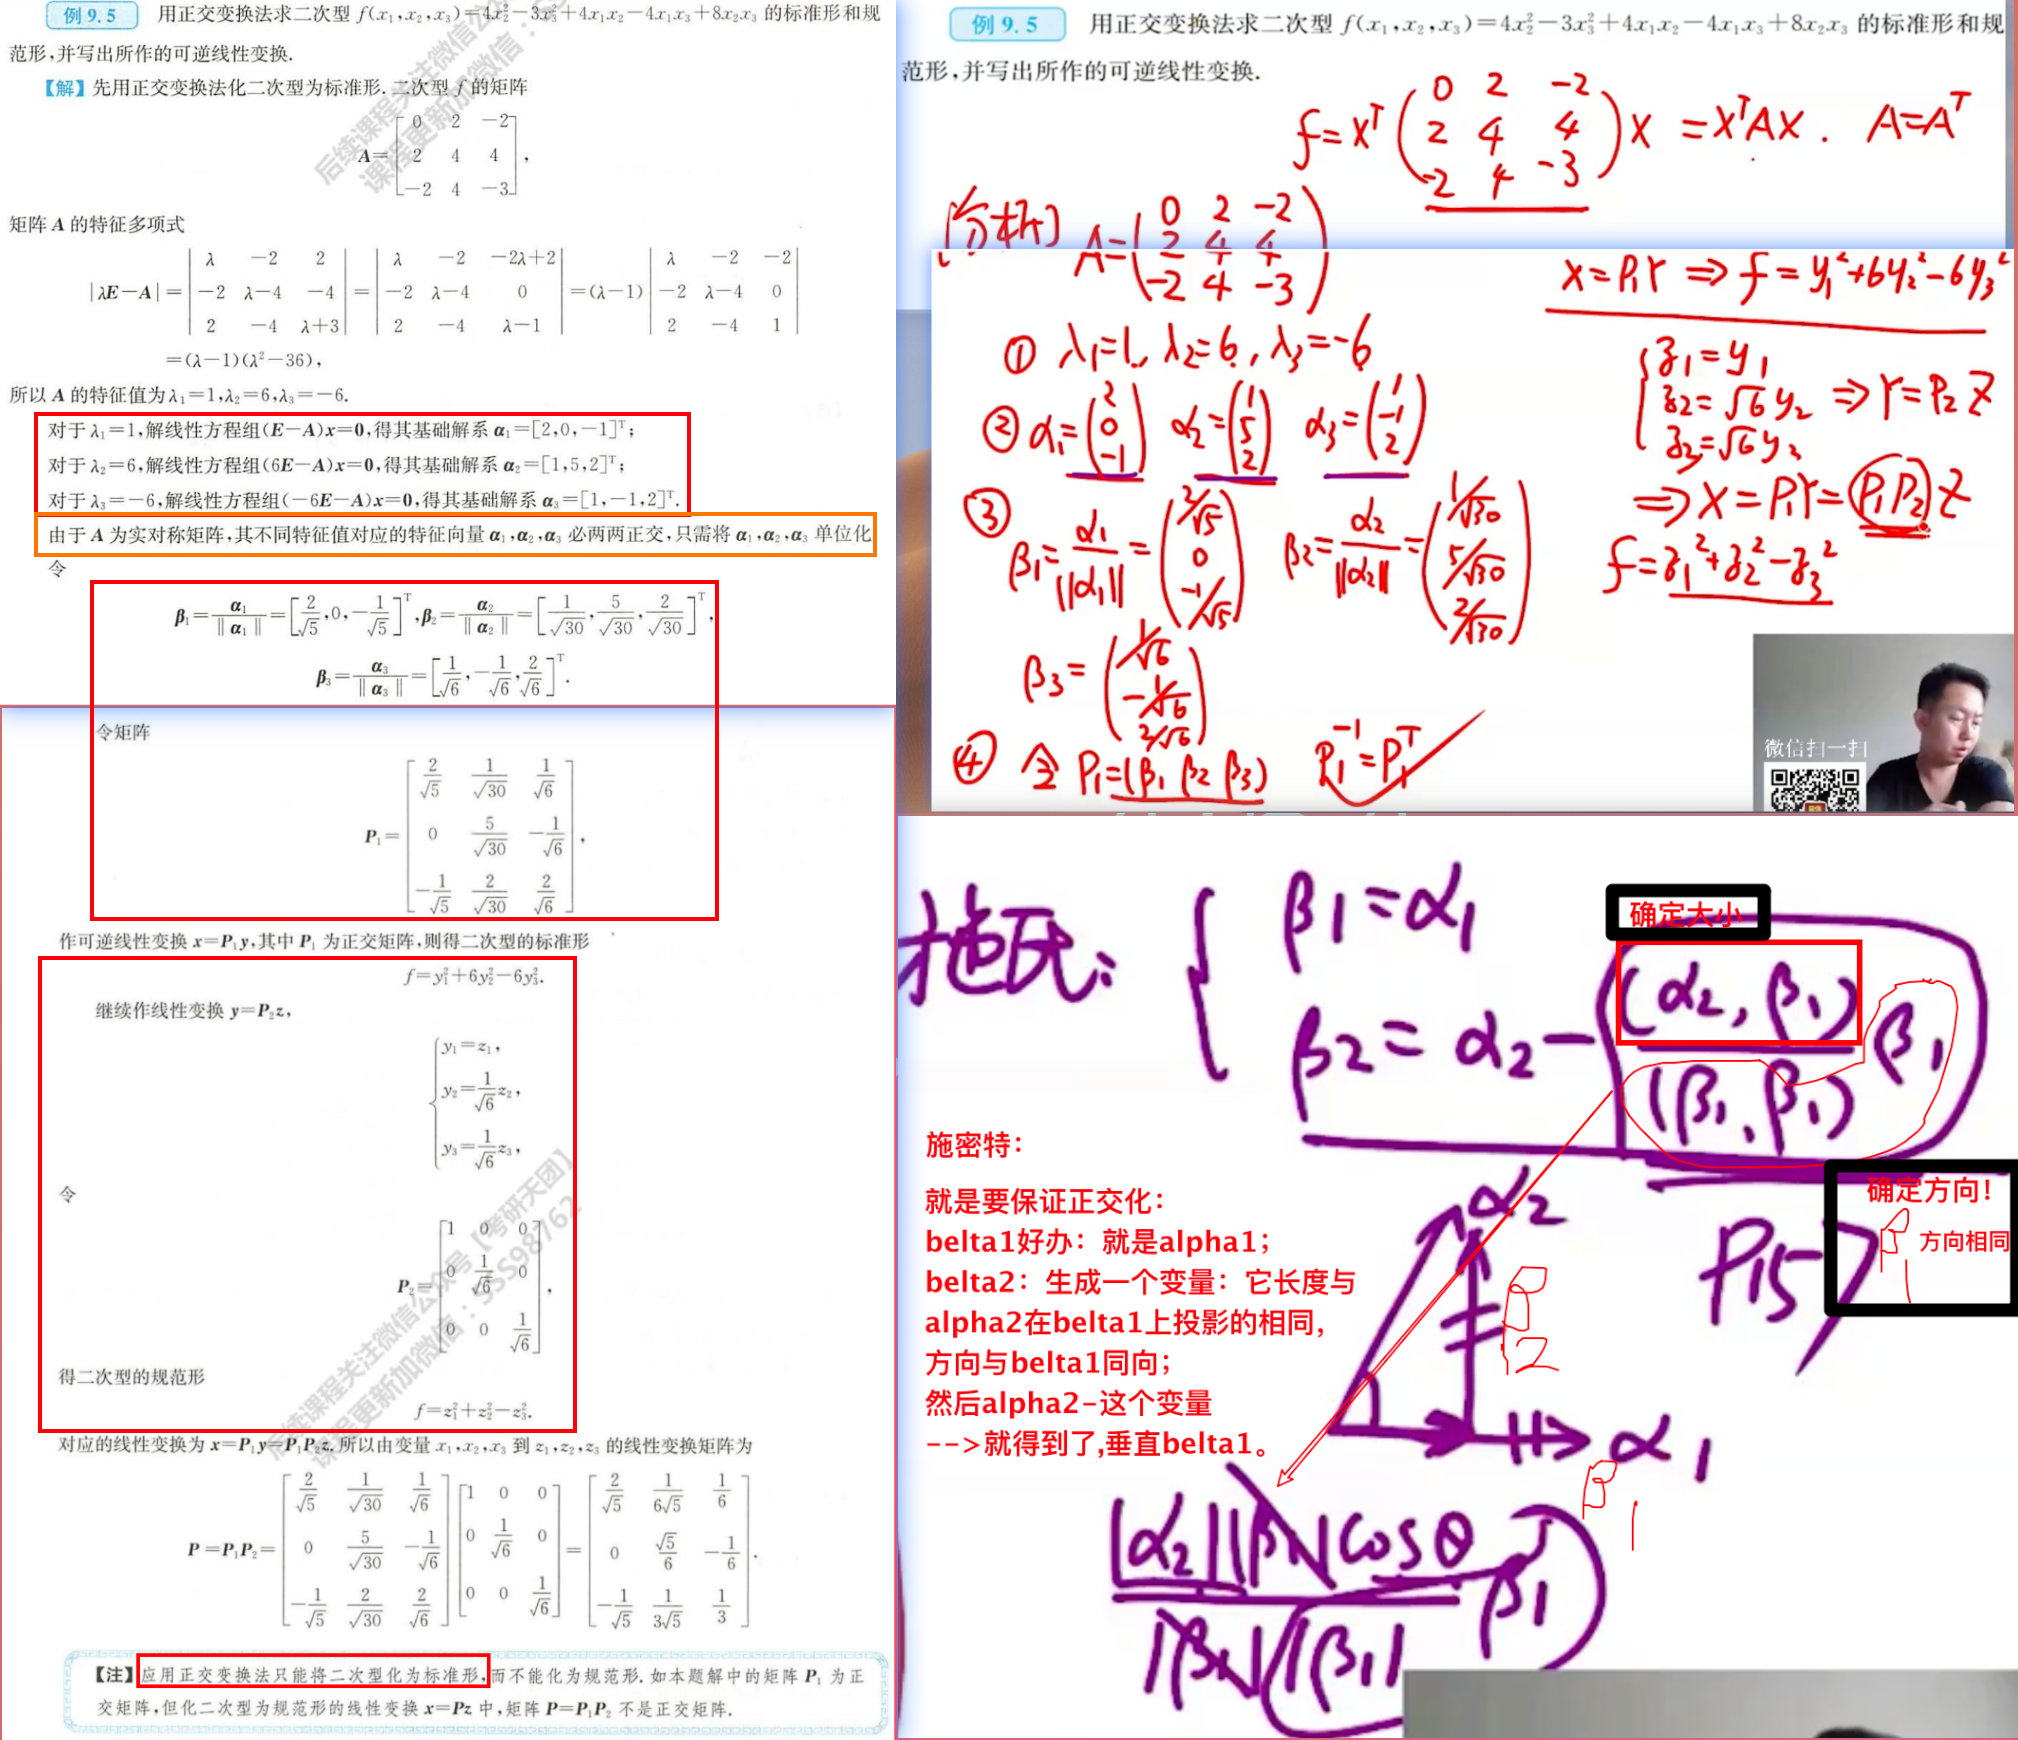 例 9.5 用正交变换法求二次型 f(x₁,x₂,x₃)=4x₂²-3x₃²+4x₁x₂-4x₁x₃+8x₂x₃ 的标准形和规
范形,并写出所作的可逆线性变换.
【解】先用正交变换法化二次型为标准形. 二次型 f 的矩阵
A=[0 2 -2; 2 4 4; -2 4 -3],
矩阵 A 的特征多项式
|λE-A|=|λ -2 2; -2 λ-4 -4; 2 -4 λ+3|=|λ -2 -2λ+2; -2 λ-4 0; 2 -4 λ-1|=(λ-1)|λ -2 -2; -2 λ-4 0; 2 -4 1|
=(λ-1)(λ²-36),
所以 A 的特征值为 λ₁=1,λ₂=6,λ₃=-6.
对于 λ₁=1,解线性方程组(E-A)x=0,得其基础解系 α₁=[2,0,-1]ᵀ;
对于 λ₂=6,解线性方程组(6E-A)x=0,得其基础解系 α₂=[1,5,2]ᵀ;
对于 λ₃=-6,解线性方程组(-6E-A)x=0,得其基础解系 α₃=[1,-1,2]ᵀ.
由于 A 为实对称矩阵,其不同特征值对应的特征向量 α₁,α₂,α₃ 必两两正交,只需将 α₁,α₂,α₃ 单位化
令
β₁=α₁/‖α₁‖=[2/√5,0,-1/√5]ᵀ,β₂=α₂/‖α₂‖=[1/√30,5/√30,2/√30]ᵀ,
β₃=α₃/‖α₃‖=[1/√6,-1/√6,2/√6]ᵀ.
令矩阵
P₁=[2/√5 1/√30 1/√6; 0 5/√30 -1/√6; -1/√5 2/√30 2/√6],
作可逆线性变换 x=P₁y,其中 P₁ 为正交矩阵,则得二次型的标准形
f=y₁²+6y₂²-6y₃².
继续作线性变换 y=P₂z,
y₁=z₁,
y₂=1/√6 z₂,
y₃=1/√6 z₃,
令
P₂=[1 0 0; 0 1/√6 0; 0 0 1/√6],
得二次型的规范形
f=z₁²+z₂²-z₃².
对应的线性变换为 x=P₁y=P₁P₂z. 所以由变量 x₁,x₂,x₃ 到 z₁,z₂,z₃ 的线性变换矩阵为
P=P₁P₂=[2/√5 1/√30 1/√6; 0 5/√30 -1/√6; -1/√5 2/√30 2/√6][1 0 0; 0 1/√6 0; 0 0 1/√6]=[2/√5 1/6√5 1/6; 0 √5/6 -1/6; -1/√5 1/3√5 1/3].
【注】应用正交变换法只能将二次型化为标准形,而不能化为规范形. 如本题解中的矩阵 P₁ 为正
交矩阵,但化二次型为规范形的线性变换 x=Pz 中,矩阵 P=P₁P₂ 不是正交矩阵.
例 9.5 用正交变换法求二次型 f(x₁,x₂,x₃)=4x₂²-3x₃²+4x₁x₂-4x₁x₃+8x₂x₃ 的标准形和规
范形,并写出所作的可逆线性变换.
f=Xᵀ(0 2 -2; 2 4 4; -2 4 -3)X =XᵀAX. A=Aᵀ
[分析] A=(0 2 -2; 2 4 4; -2 4 -3)
① λ₁=1, λ₂=6, λ₃=-6
② α₁=(2 0 -1) α₂=(1 5 2) α₃=(1 -1 2)
③ β₁=α₁/‖α₁‖=(2/√5 0 -1/√5) β₂=α₂/‖α₂‖=(1/√30 5/√30 2/√30)
β₃=(1/√6 -1/√6 2/√6)
④ 令 P₁=(β₁ β₂ β₃) P₁⁻¹=P₁ᵀ
X=P₁Y ⇒ f=y₁²+6y₂²-6y₃²
z₁=y₁
z₂=√6y₂ ⇒ Y=P₂Z
z₃=√6y₃
⇒ X=P₁Y=(P₁P₂)Z
f=z₁²+z₂²-z₃²
微信扫一扫
施氏: β₁=α₁
确定大小
β₂=α₂-(α₂,β₁)/(β₁,β₁) β₁
确定方向!
β1 方向相同
P157
施密特:
就是要保证正交化:
belta1好办: 就是alpha1;
belta2: 生成一个变量: 它长度与
alpha2在belta1上投影的相同,
方向与belta1同向;
然后alpha2-这个变量
-->就得到了,垂直belta1。
α₂
β2
α₁
β1
|α₂||β₁|cosθ/|β₁||β₁| β₁
后续课程关注微信公众号【考研天团】
课程更新加微信: